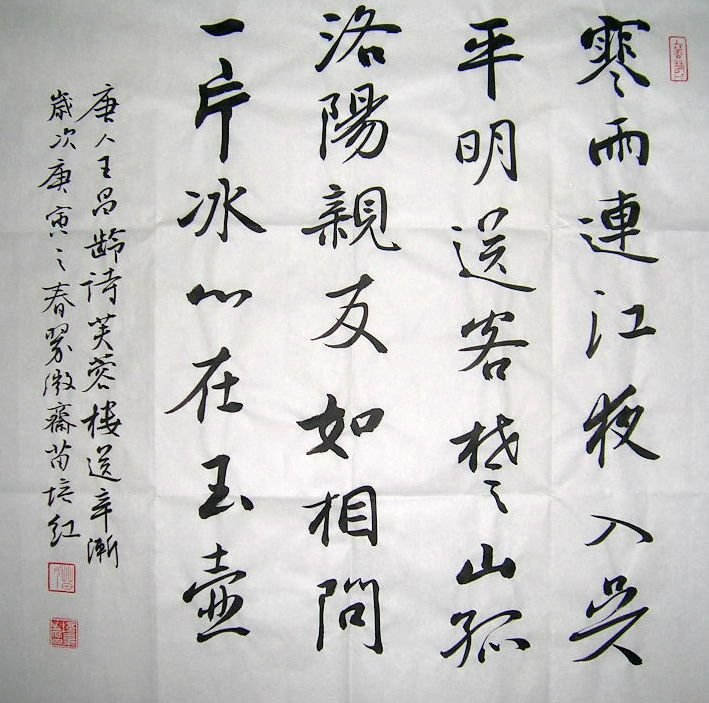 寒雨連江夜入吳
平明送客楚山孤
洛陽親友如相問
一片冰心在玉壺
唐人王昌齡詩芙蓉樓送辛漸
歲次庚寅之春翠微齋苗培紅